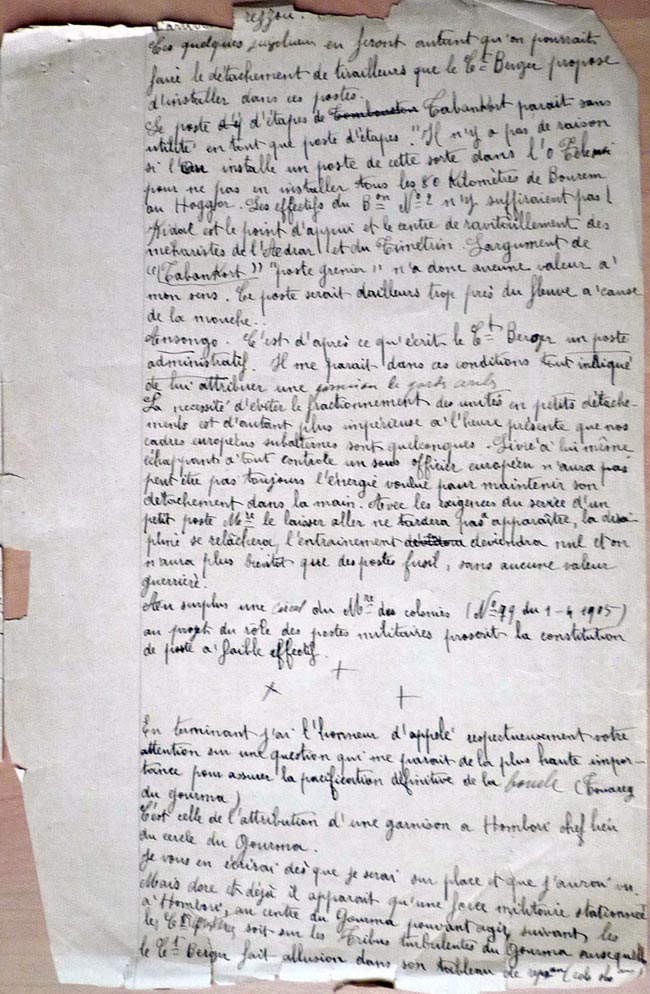 rezzou.
Ces quelques en feront autant qu'on pourrait
faire le détachement de tirailleurs que le Ct Berger propose
d'installer dans ces postes.
Le poste d'étapes de Tombouctou Tabankort parait sans
utilité en tant que poste d'étapes. "Il n'y a pas de raison
si l'on installe un poste de cette sorte dans l'O
pour ne pas en installer tous les 80 Kilomètres de Bourem
au Hoggar. Les effectifs du Bon No 2 n'y suffiraient pas !
Kidal est le point d'appui et le centre de ravitaillement des
méharistes de l'Aedrar et du Timétrin. L'argument de
"(Tabankort)" "poste grenier" n'a donc aucune valeur a'
mon sens. Ce poste serait dailleurs trop près du fleuve a' cause
de la mouche..
Ansongo. C'est d'après ce qu'écrit le Ct Berger un poste
administratif. Il me parait dans ces conditions tout indiqué
de lui attribuer une de garde
La necessité d'éviter le fractionnement des unités en petits détache-
ments est d'autant plus impérieuse a l'heure présente que nos
cadres européens subalternes sont quelconques. Livré a' lui même
échappant a' tout controle un sous officier européen n'aura pas
peut être pas toujours l'énergie voulue pour maintenir son
détachement dans la main. Avec les exigences du service d'un
petit poste Mre le laisser aller ne tardera pas a apparaître, la disci-
pline se relâchera, l'entrainement deviendra nul et on
n'aura plus bientôt que des postes fusil, sans aucune valeur
guerrière.
Au surplus une du Mre des colonies (No 79 du 1-4 1905)
au projet du rôle des postes militaires proscrit la constitution
de poste a' faible effectif.
+
x +
En terminant j'ai l'honneur d'appelé respectueusement votre
attention sur une question qui me parait de la plus haute impor-
tance pour assurer la pacification définitive de la boucle (Touareg
du gourma)
C'est celle de l'attribution d'une garnison a Hombori chef lieu
du cercle du Gourma.
Je vous en écrirai dès que je serai sur place et que j'aurai vu.
Mais dore et déjà il apparait qu'une force militaire stationnée
a' Hombori, au centre du Gourma pouvant agir suivant les
les soit sur les Tribus turbulentes du Gourma auxquelles
le Ct Berger fait allusion dans son tableau de